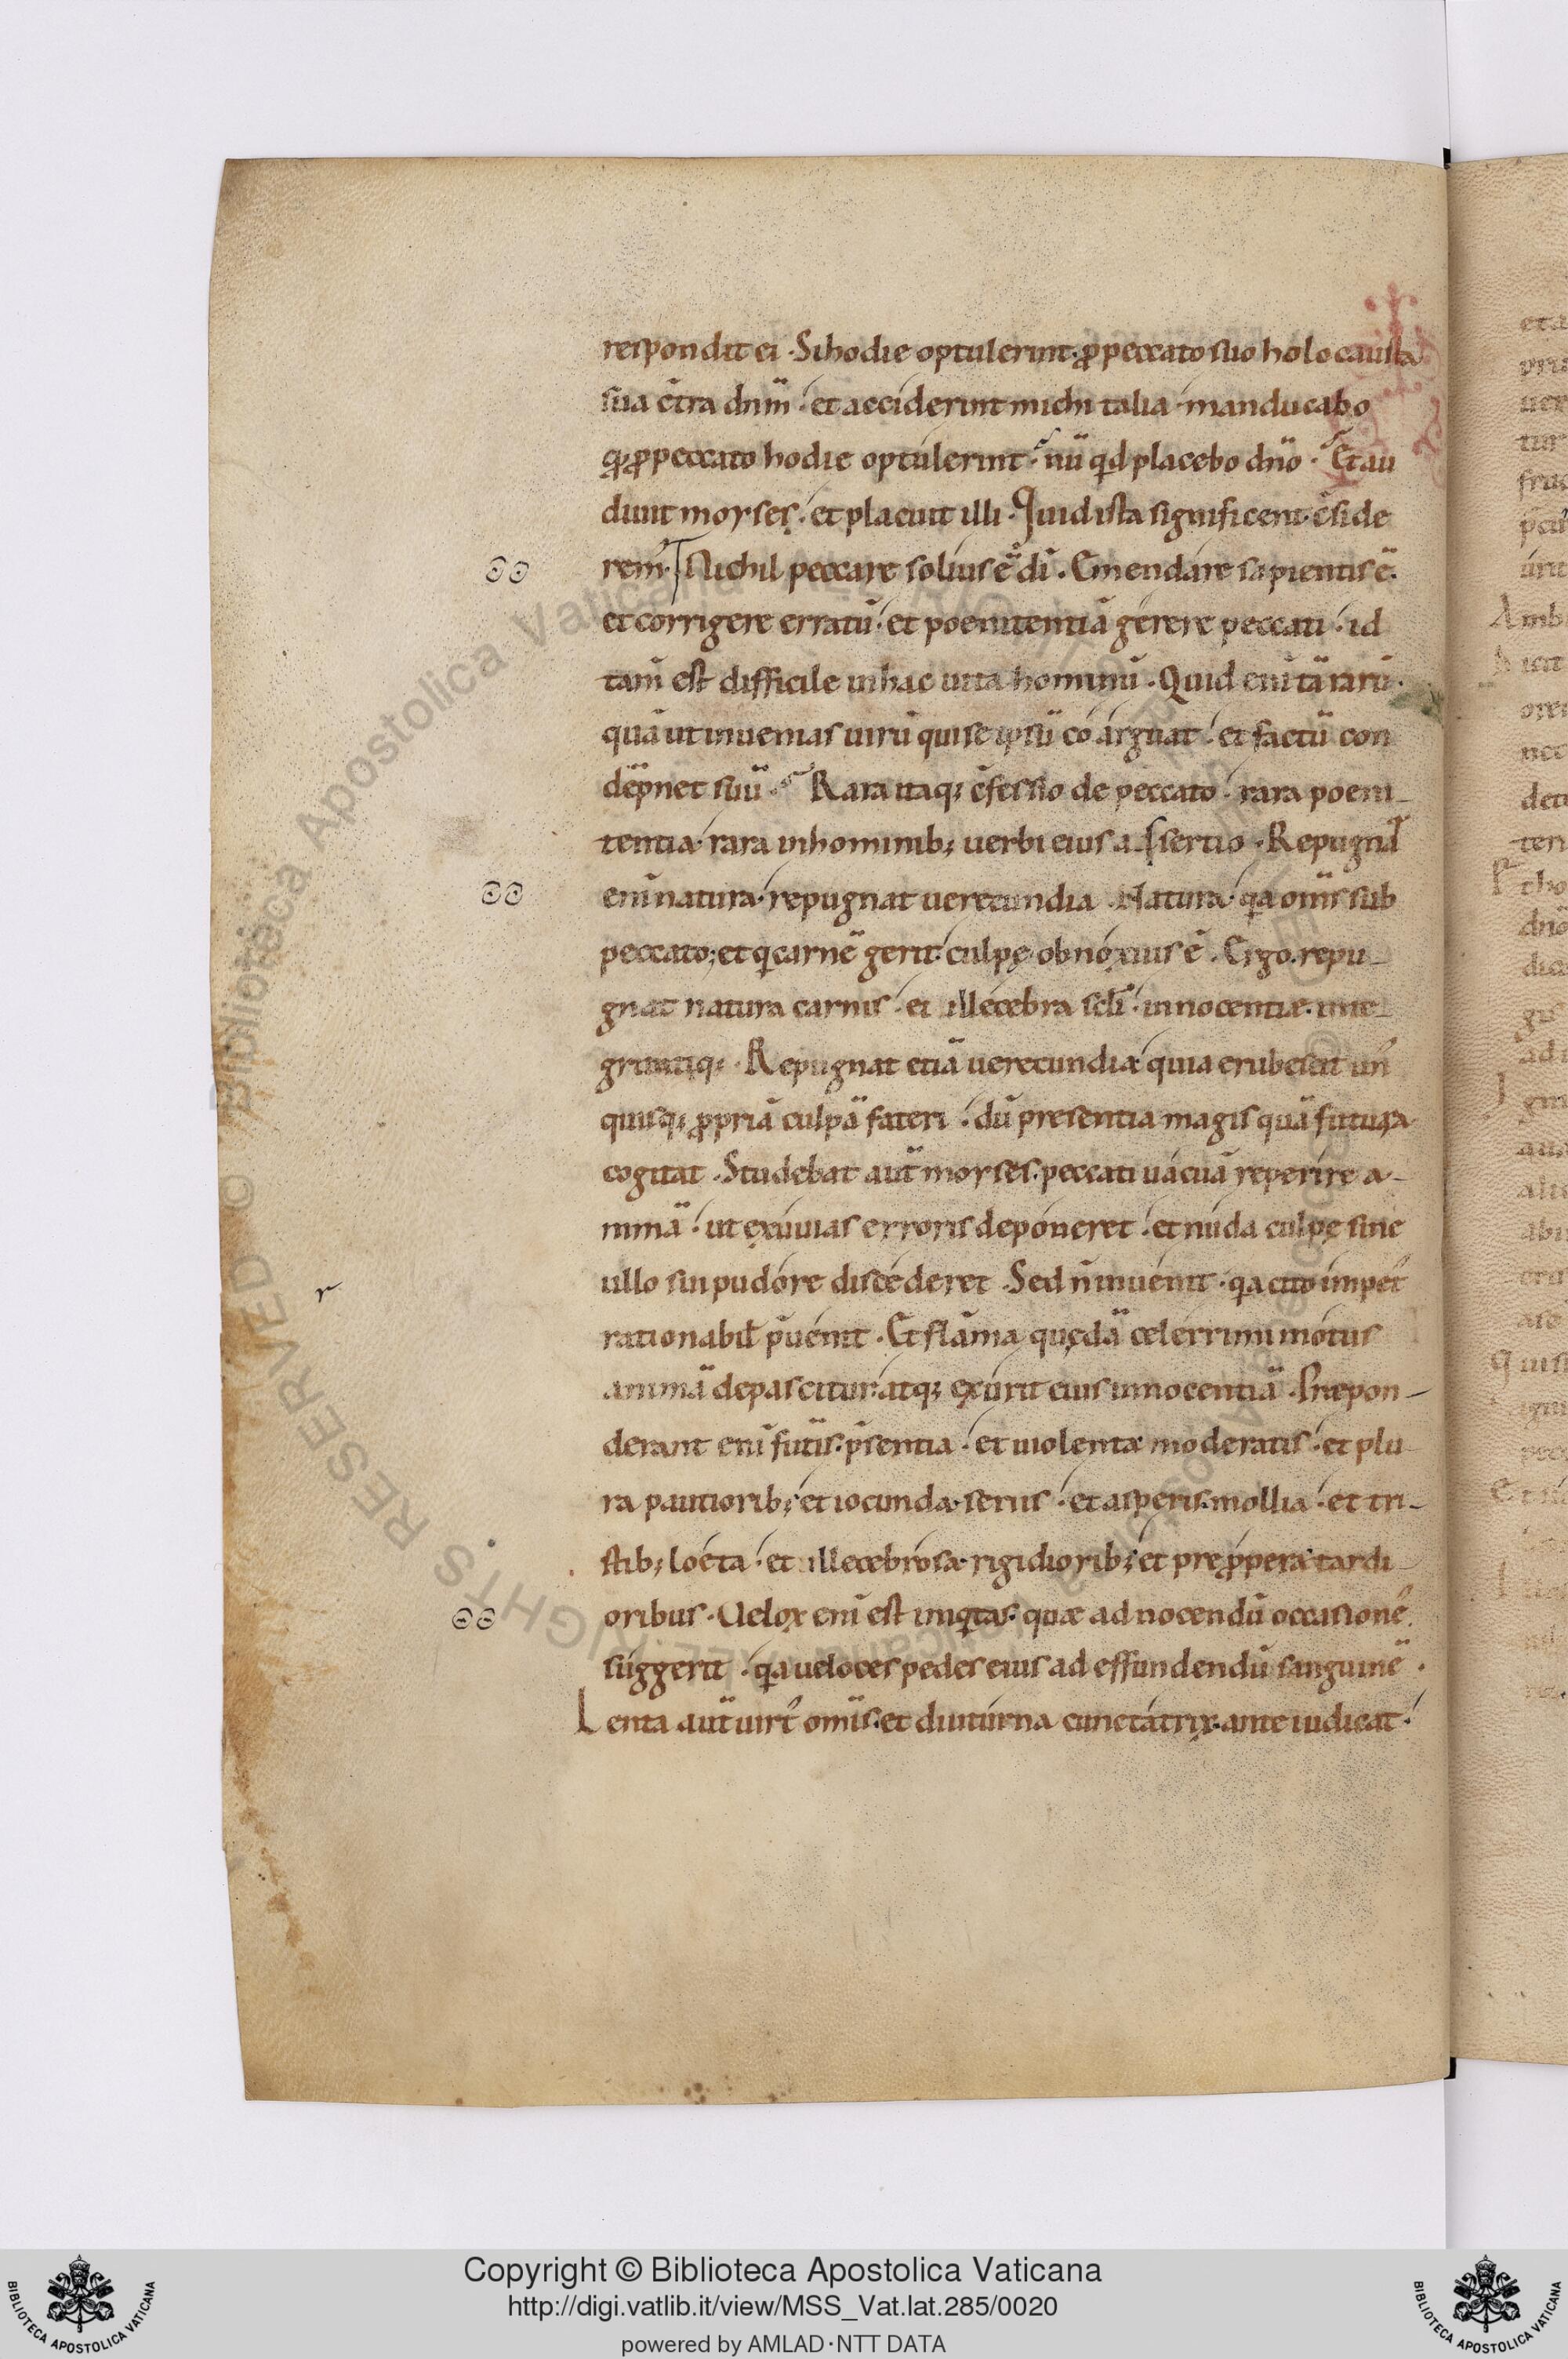 respondit ei · Si hodie optulerint · ꝓ peccato suo holocausta
sua c̄tra dnm̄ · et acciderint michi talia · manducabo
qđ ꝓ peccato hodie optulerint · nū qd placebo dn̄o · Et au
diuit moyses · et placuit illi · Quid ista significent · c̄side
rem̄ · Nichil peccare solius ē di · Emendare sapientis ē ·
et corrigere erratū · et poenitentiā gerere peccati · id
tam̄ est difficile in hac uita hominū · Quid eni tā rarū ·
quā ut inuenias uirū qui se ipsū coarguat · et factū con
dēpnet suū · Rara itaq; c̄fessio de peccato · rara poeni-
tentia · rara in hominib; uerbi eius assertio · Repugnat
eni natura · repugnat uerecundia · Natura · qa om̄is sub
peccato; et q carnē gerit · culpę obnoxius ē · Ergo · repu-
gnat natura carnis · ei illecebra scl̄i · innocentiæ · inte-
gritatiq; · Repugnat etiā uerecundia · quia erubescit un̄
quisq; ꝓpriā culpā fateri · dū presentia magis quā futura
cogitat · Studebat aut̄ moyses · peccati uacuā reperire a-
nimā · ut exuuias erroris deponeret · et nuda culpę sine
ullo sui pudore discederet · Sed n̄ inuenit · qa cito impet̄
rationabil̄ p̄uenit · Et flāma quędā celerrimi motus
animā depascitur · atq; exurit eius innocentiā · Præpon-
derant eni fut̄is · p̄sentia · et uiolenta moderatis · et plu
ra pautiorib; et iocunda · seriis · et asperis · mollia · et tri-
stib; loeta · et illecebrosa · rigidiorib; et preꝓpera · tardi-
oribus · Uelox eni est iniqtas · quæ ad nocendū occasionē
suggerit · qa ueloces pedes eius ad effundendū sanguinē ·
Lenta aut̄ uirt̄ om̄is · et diuturna cunctatrix · ante iudicat ·
r
Copyright © Biblioteca Apostolica Vaticana
http://digi.vatlib.it/view/MSS_Vat.lat.285/0020
powered by AMLAD·NTT DATA
BIBLIOTECA APOSTOLICA VATICANA
BIBLIOTECA APOSTOLICA VATICANA